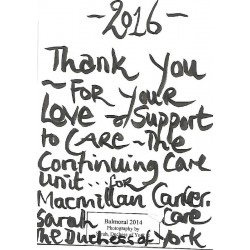 ~2016~
Thank you
~FOR your
Love & Support
to CARE~The
Continuing Care
unit...for
Macmillan Cancer
Care
Sarah
The Duchess of York
Balmoral 2014
Photography by
Sarah, Duchess of York